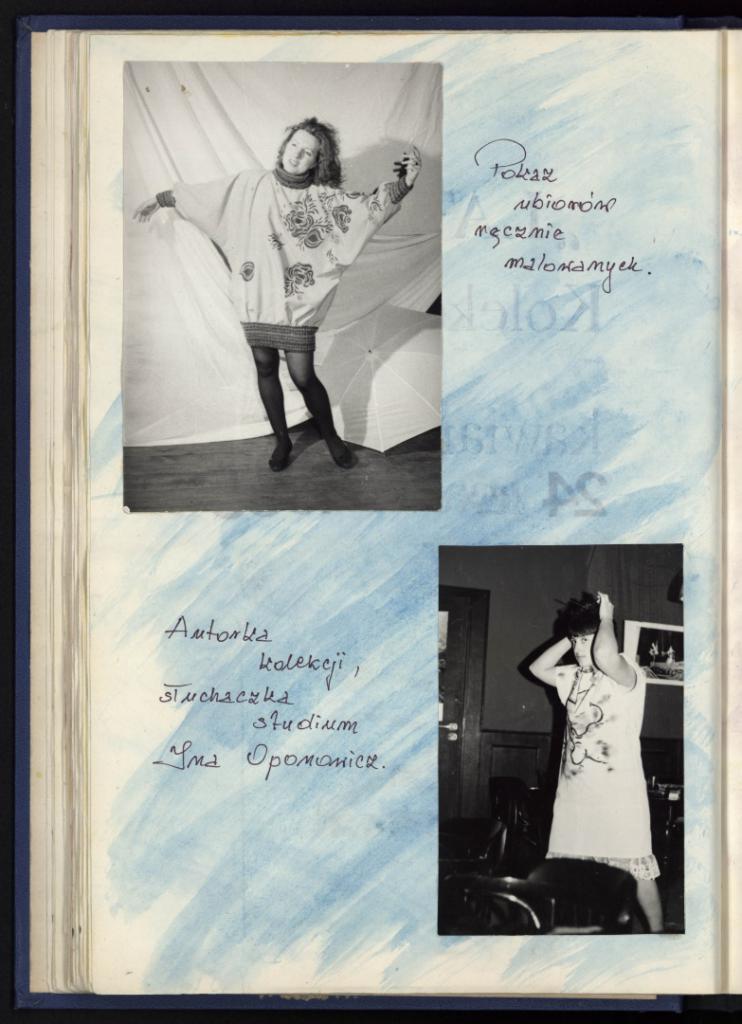 Pokaz
ubiorów
ręcznie
malowanych.
Autorka
kolekcji,
słuchaczka
studium
Ina Oponowicz.